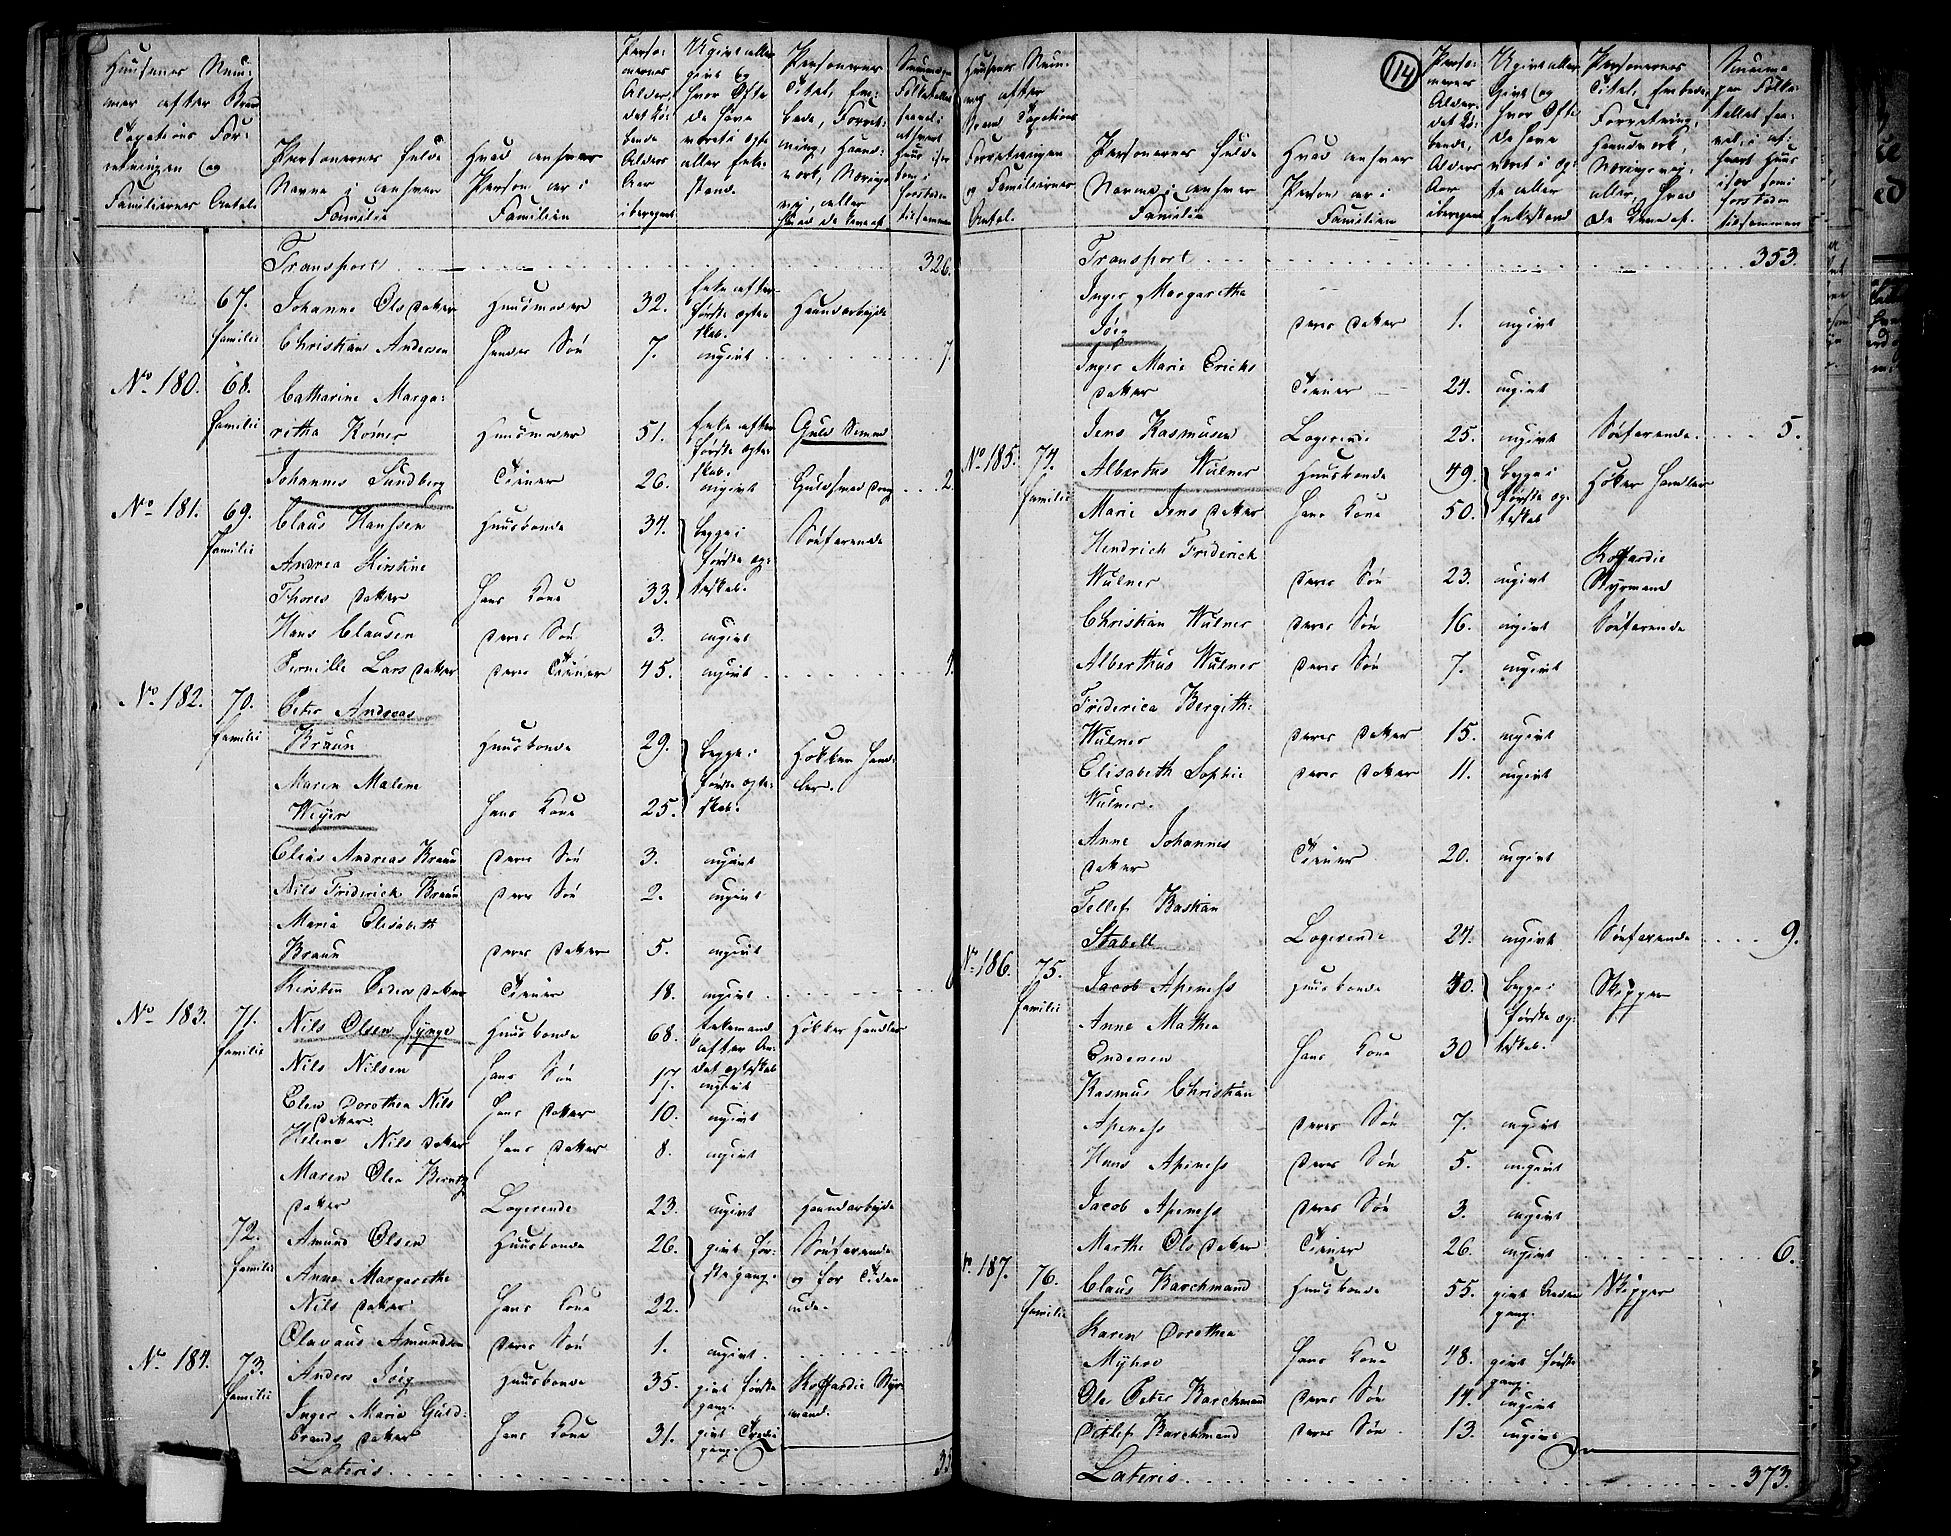 Huusenes Num-
mer efter Brand
Taxations For-
retningen og
Familiernes Antal.
Personernes fulde
Navne i enhver
Familie
Hvad enhver
Person er i
Familien
Perso-
nernes
Alder,
det lø-
bende
Alders
Aar
iberegnet
Ugivt eller
givt og
hvor ofte
de have
været i egte
eller Enke-
stand.
Personernes
Titel, Em-
bede, Forret-
ning, Haand-
værk, Nærings-
vej, eller
hvad de leve af.
Transport 326.
67. familie Johanne Ols dater Huusmoder 32. Enke efter første egte-skab. Haandarbejde
Christian Andersen hendes Søn 7. ugivt 7
No 180. 68. familie Catharine Marga-
ritha Rømer Huusmoder 51. Enke efter første egte-skab. Guld Smed
Johannes Sundberg Tiener 26. ugivt Guldsmed Dreng 2.
No 181. 69. familie Claus Hanssen Huusbonde 34. begge i første eg-teskab. Søefarende
Andrea Kirstine
Thores dater hans Kone 33.
Hans Clausen deres Søn 3. ugivt
Pernille Lars dater deres Tiener 45. ugivt 4.
No 182. 70. familie Peter Andreas
Braun Huusbonde 29. begge i første egte-skab. Høkker Hand-ler.
Maren Malene
Weyer hans Kone 25.
Elias Andreas Braun deres Søn 3. ugivt
Nils Friderich Braun deres Søn 2. ugivt
Maria Elisabeth
Braun deres dater 5. ugivt
Kirsten Peders dater Tiener 18. ugivt
No 183. 71. familie Nils Olsen Lynge Huusbonde 68. Enkemand efter An-det egteskab Høkker Handler
Nils Nilsen hans Søn 17. ugivt
Elen Dorothea Nils
dater hans dater 10. ugivt
Helene Nils dater hans dater 8. ugivt
Maren Olea Berntz
dater Logerende 23. ugivt Haandarbejde
72. familie Amund Olsen Huusbonde 26. givt før-ste gang. Søefarende og for Tiden ude.
Anne Margarethe
Nils dater hans Kone 22.
Olavaus Amundsen deres Søn 1. ugivt
No 184. 73. familie Anders Foig Huusbonde 35. givt første gang. Koffardie Styr-mand.
Inger Maria Guld-
brands dater hans Kone 31. givt Tredie gang.
Lateris 35
114
Huusenes Num-
mer efter
Brand Taxations
Forretningen
og Familiernes
Antal.
Personernes fulde
Navne i enhver
Familie
Hvad enhver
Person er i
Familien
Perso-
nernes
Alder,
det lø-
bende,
Alders
Aar
iberegnet
Ugivt eller
Givt og
hvor ofte
de have
været i eg-
te eller
Enkestand
Personernes
Titel, Embede,
Forretning,
Haandværk,
Næringsvej,
eller, hvad
de leve af.
Summa
paa Folke-
tallet saa-
vel i et-
hvert Huus
især som i
forsteden
tilsammen
Transport 353.
Inger Margaretha
Foig deres dater 1. ugivt
Inger Marie Erichs
dater Tiener 24. ugivt
Jens Rasmusen Logerende 25. ugivt Søefarende. 5.
No 185. 74. familie Albertus Wulner Huusbonde 49. begge i første eg-teskab Høker Handler
Marie Jens dater hans Kone 50.
Hendrich Friderich
Wulner deres Søn 23. ugivt Koffardie Styrmand
Christian Wulner deres Søn 16. ugivt Søefarende
Alberthus Wulner deres Søn 7. ugivt
Friderica Bergithe
Wulner deres dater 15. ugivt
Elisabeth Sophie deres dater 11. ugivt
Wulner.
Anne Johannes
dater Tiener 20. ugivt
Tellef Bastian
Stabell Logerende 24. ugivt Søefarende 9.
No 186. 75. familie Jacob Apeness Huusbonde 40. begge i første eg-teskab. Skipper
Anne Mathea
Endersen hans Kone 30
Rasmus Christian
Apeness deres Søn 7. ugivt
Hans Apeness deres Søn 5. ugivt
Jacob Apeness deres Søn 3. ugivt
Marthe Ols dater Tiener 26. ugivt 6.
No 187. 76. familie Claus Barchmand Huusbonde 55. givt Anden gang. Skipper
Karen Dorothea
Myhre hans Kone 48. givt første gang.
Ole Peter Barchmand deres Søn 14. ugivt
Ditlef Barchmand deres Søn 13. ugivt
Lateris 373.